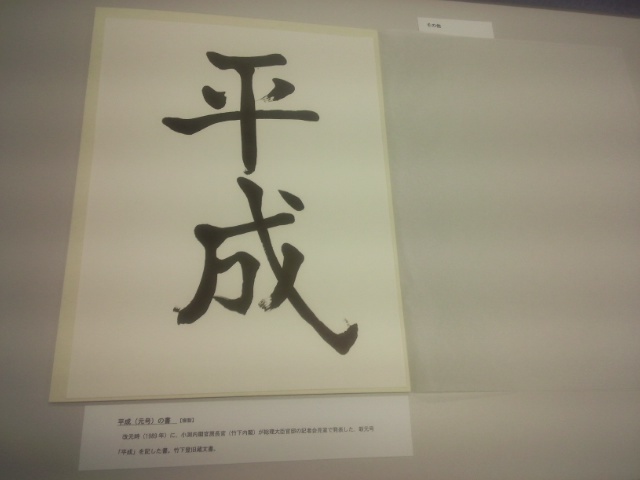 平成
平成（元号）の書 【複製】
改元時（1989年）に、小渕内閣官房長官（竹下内閣）が総理大臣官邸の記者会見室で発表した、新元号
「平成」を記した書。竹下登旧蔵文書。